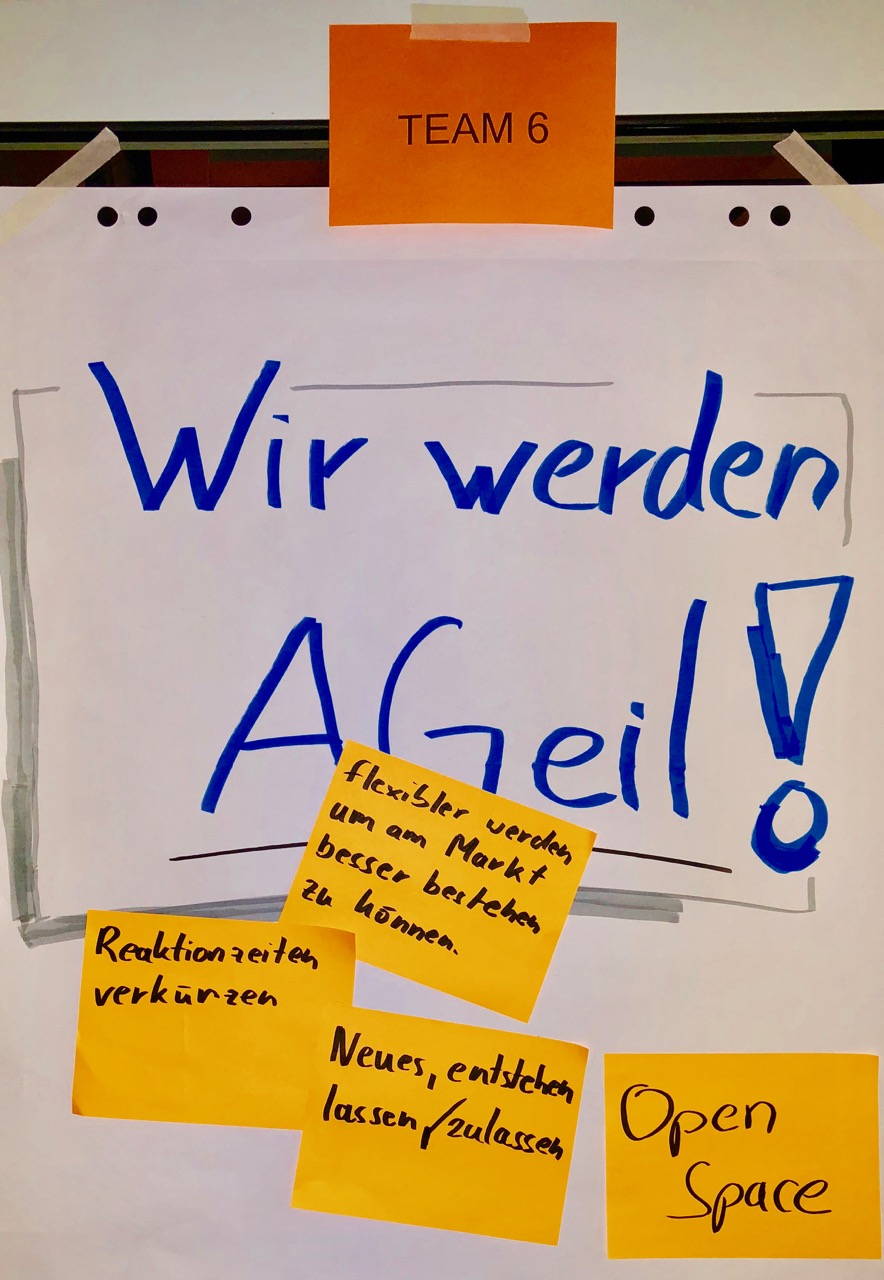 TEAM 6
Wir werden
AGeil!
flexibler werden
um am Markt
besser bestehen
zu können.
Reaktionzeiten
verkürzen
Neues, entstehen
lassen/zulassen
Open
Space